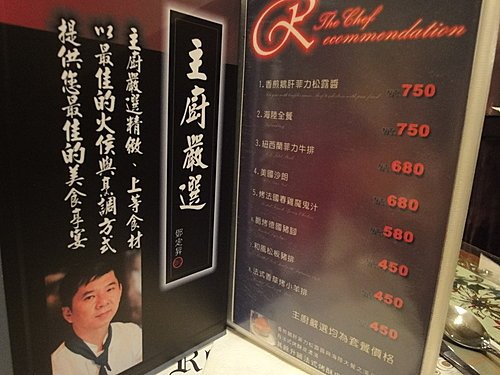 主廚嚴選
鄧定昇
主廚嚴選精緻、上等食材
以最佳的火侯與烹調方式
提供您最佳的美食享宴
The Chef
Recommendation
1.香煎鵝肝菲力松露醬 750
2.海陸全餐 750
3.紐西蘭菲力牛排 680
4.美國沙朗 680
5.烤法國春雞魔鬼汁 580
6.脆烤德國豬腳 450
7.和風松板豬排 450
8.法式香草烤小羊排 450
主廚嚴選均為套餐價格